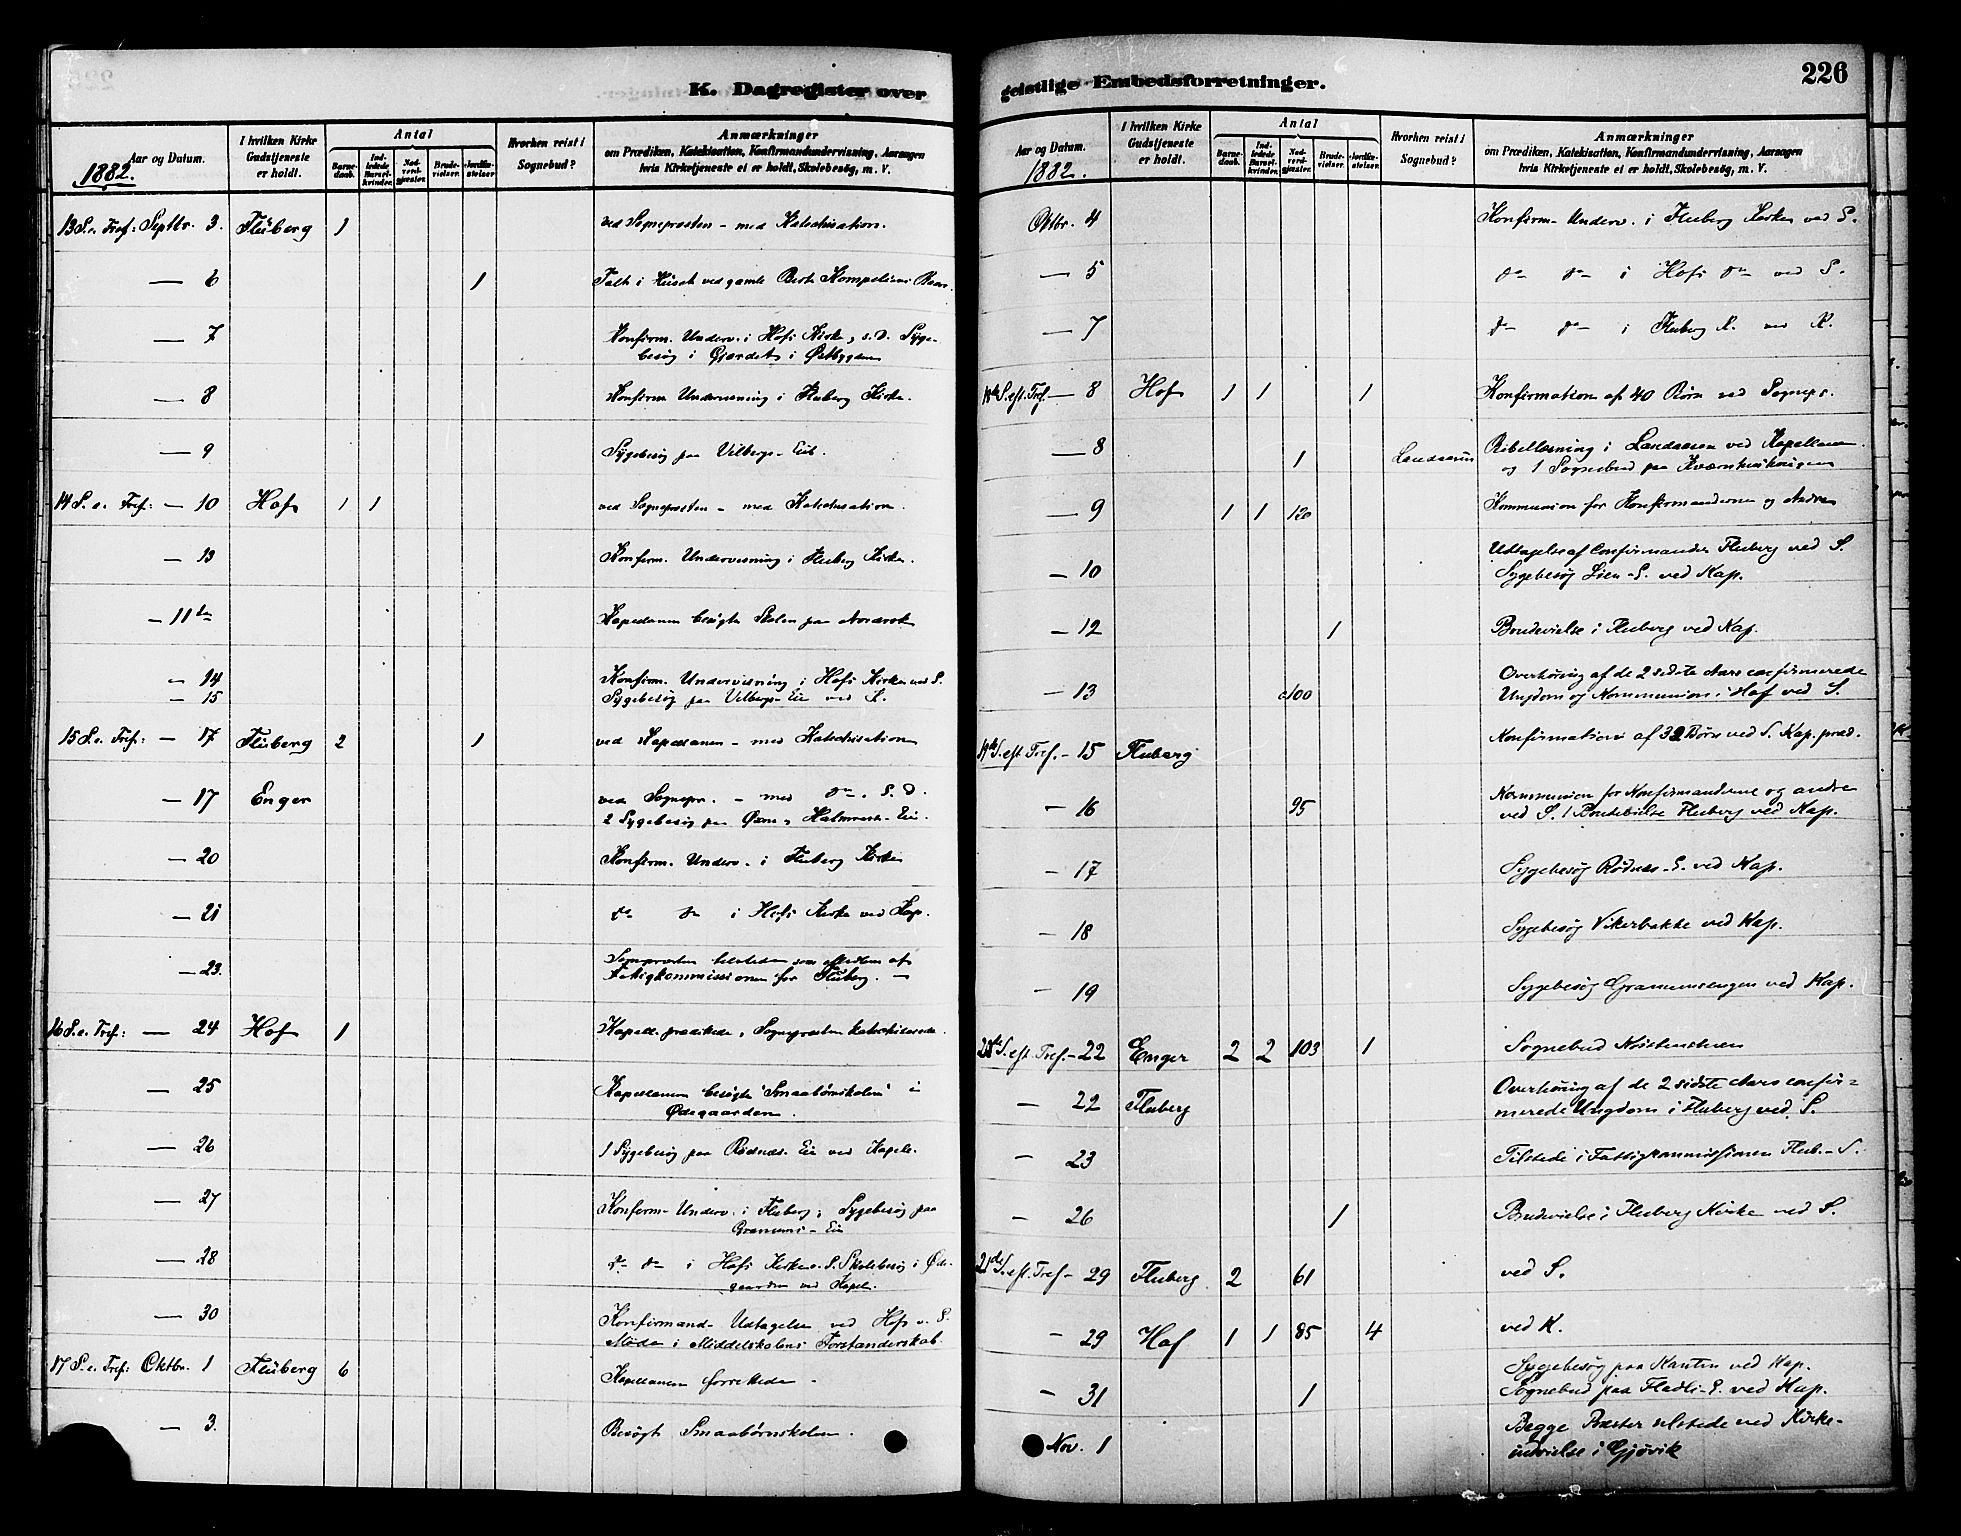 K. Dagregister over
Aar og Datum.
1882.
I hvilken Kirke Gudstjeneste er holdt.
Antal
Barnedaab.
Indledede Barselkvinder.
Nadverdgjester.
Brudevielser.
Jordfæstelser.
Hvorhen reist i Sognebud?
Anmærkninger
om Prædiken, Katekisation, Konfirmandundervisning, Aarsagen
hvis Kirketjeneste ei er holdt, Skolebesøg, m. V.
13 S. e. Tref: Septbr. 3. Fluberg 1 ved Sognepresten - med Katechisation.
— 6 1 Talt i Huset ved gamle
— 7 Konfirm. Underv. i Hofs Kirke, s. D. Syge-
besøg i Gjærdet i Østbygden
— 8 Konfirm Undervisning i Fluberg Kirke.
— 9 Sygebesøg paa Vilbergs-Eie.
14 S. e. Tref: — 10 Hof 1 1 ved Sognepresten - med Katechisation.
— 13 Konfirm. Undervisning i Fluberg Kirke.
— 11te Kapellanen besøgte Skolen paa
— 14 Konfirm. Undervisning i Hofs Kirke ved S.
— 15 Sygebesøg paa Vilbergs-Eie ved
15 S. e. Tref: — 17 Fluberg 2 1 ved Kapellanen - med Katechisation
— 17 Enger ved Sognepr. - med do. S. D.
2 Sygebesøg paa Eie.
— 20 Konfirm. Underv. i Fluberg Kirke
— 21 do do i Hofs Kirke ved Kap.
— 23. tilstede som Medlem af
Fattigkommissionen for Fluberg. —
16 S. e. Tref: — 24 Hof 1 Kapell. prædikede, Sognepræsten katechiserede.
— 25 Kapellanen besøgte "Smaabørnskolen" i
Ødegaarden.
— 26 1 Sygebesøg paa Rødnæs-Eie ved Kapell.
— 27 Konfirm-Underv. i Fluberg; Sygebesøg paa
Granums-Eie
— 28 do do i Hofs Kirke v. S. Skolebesøg i Øde-
gaarden ved Kapell.
— 30 Konfirmand-Udtagelse ved Hof v. S.
Møde i Middelskolens Forstanderskab.
17 S. e. Tref: Oktbr. 1 Fluberg 6 Kapellanen forrettede -
— 3. Besøgt Smaabørnskolen.
geistlige Embedsforretninger.
226
Aar og Datum.
1882.
I hvilken Kirke Gudstjeneste er holdt.
Antal
Barnedaab.
Indledede Barselkvinder.
Nadverdgjester.
Brudevielser.
Jordfæstelser.
Hvorhen reist i Sognebud?
Anmærkninger
om Prædiken, Katekisation, Konfirmandundervisning, Aarsagen
hvis Kirketjeneste ei er holdt, Skolebesøg, m. V.
Oktbr. 4 Konfirm-Underv. i Fluberg Kirke ved S.
— 5 do do i Hofs do ved S.
— 7 do do i Fluberg K. ved K.
18de S. eft. Tref. — 8 Hof 1 1 1 Konfirmation af 40 Børn ved Sognepr.
— 8 1 Landaasen Bibellæsning i Landaasen ved Kapellanen
og 1 Sognebud paa
— 9 1 1 120 Kommunion for Konfirmanderne og Andre
— 10 Udtagelse af Confirmander Fluberg ved S.
Sygebesøg Lien-E. ved Kap.
— 12 1 Brudevielse i Fluberg ved Kap.
— 13 100 Overhøring af de 2 sidste Aars confirmerede
Ungdom og Kommunion i Hof ved S.
19de S. eft. Tref. - 15 Fluberg Konfirmation af 32 Børn ved S. Kap. præd.
— 16 95 Kommunion for Konfirmanderne og andre
ved S. 1 Brudevielse Fluberg ved Kap.
— 17 Sygebesøg Rødnæs-E. ved Kap.
— 18 Sygebesøg Vikerbakke ved Kap.
— 19 Sygebesøg Granumsengen ved Kap.
20de S. eft. Tref. - 22 Enger 2 2 103 1 Sognebud
— 22 Fluberg Overhøring af de 2 sidste Aars confir-
merede Ungdom i Fluberg ved S.
— 23 Tilstede i Fattigkommissionen Flub. - S.
— 26 1 Brudevielse i Fluberg Kirke ved S.
21de S. eft. Tref - 29 Fluberg 2 61 ved S.
— 29 Hof 1 1 85 4 ved K.
Sygebesøg paa Kanten ved Kap.
— 31 1 Sognebud paa Fladli-E. ved Kap.
Nov. 1 Begge Præster tilstede ved Kirke-
indvielse i Gjøvik